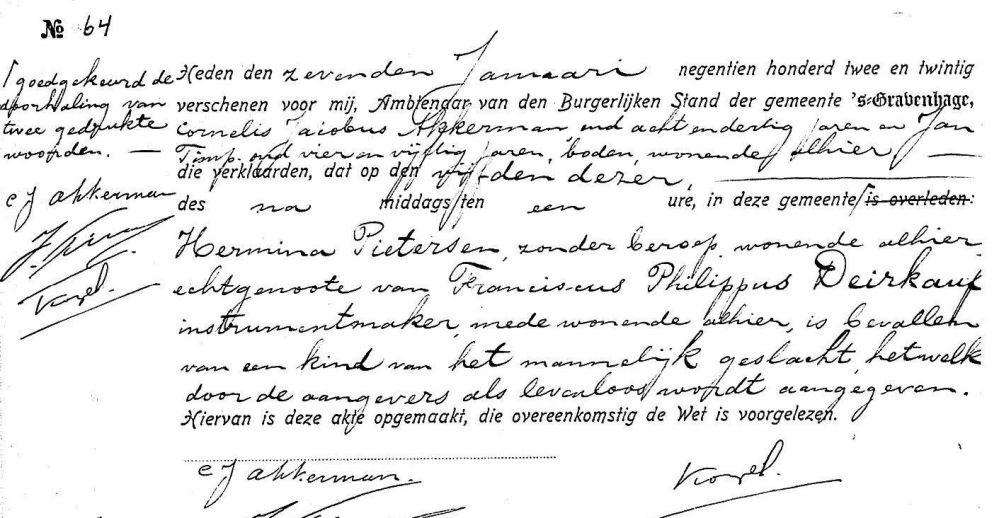 No 64
goedgekeurd de
doorhaling van
twee gedrukte
woorden. —
C J Akkerman
Heden den zevenden Januari negentien honderd twee en twintig
verschenen voor mij, Ambtenaar van den Burgerlijken Stand der gemeente 's-Gravenhage,
Cornelis Jacobus Akkerman, oud acht en dertig jaren en Jan
Timp, oud vier en vijftig jaren, boden, wonende alhier —
die verklaarden, dat op den vijfden dezer,
des na middags ten een ure, in deze gemeente is overleden:
Hermina Pietersen, zonder beroep, wonende alhier
echtgenoote van Franciscus Philippus Deirkauf
instrumentmaker, mede wonende alhier, is bevallen
van een kind van het mannelijk geslacht, hetwelk
door de aangevers als levenloos wordt aangegeven.
Hiervan is deze akte opgemaakt, die overeenkomstig de Wet is voorgelezen.
C J Akkerman.